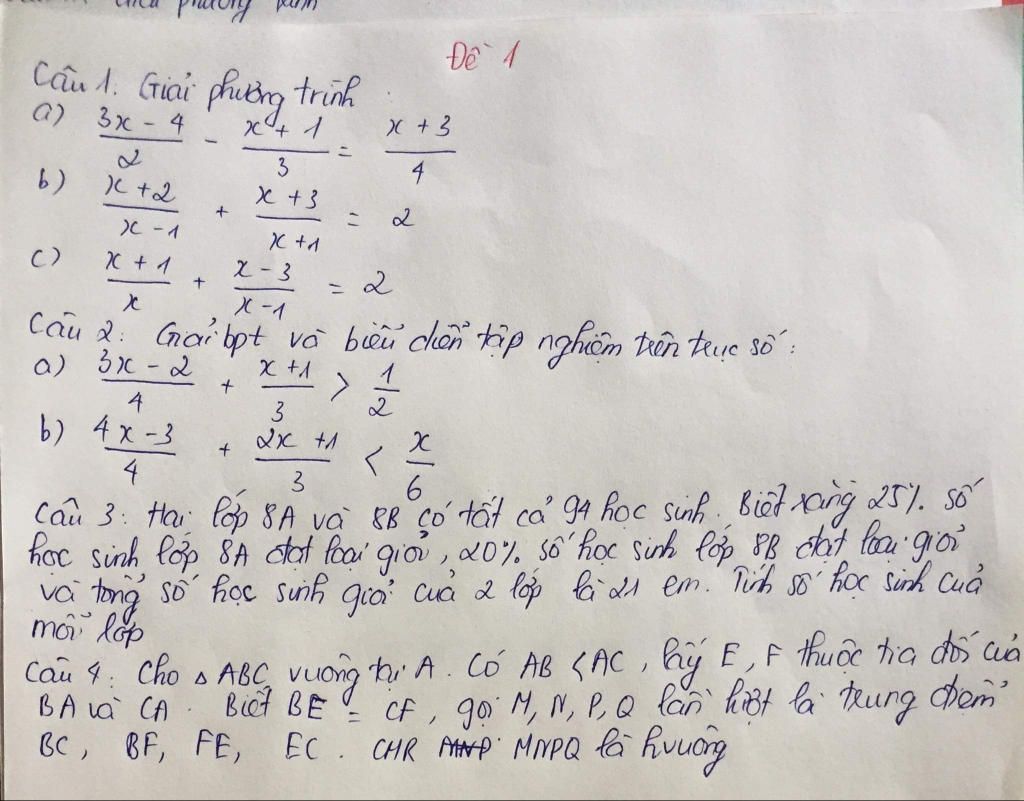 Đề 1
Câu 1: Giải phương trình
a) (3x - 4)/2 - (x + 1)/3 = (x + 3)/4
b) (x + 2)/(x - 1) + (x + 3)/(x + 1) = 2
c) (x + 1)/x + (x - 3)/(x - 1) = 2
Câu 2: Giải bpt và biểu diễn tập nghiệm trên trục số:
a) (3x - 2)/4 + (x + 1)/3 > 1/2
b) (4x - 3)/4 + (2x + 1)/3 < x/6
Câu 3: Hai lớp 8A và 8B có tất cả 94 học sinh. Biết rằng 25% số
học sinh lớp 8A đạt loại giỏi, 20% số học sinh lớp 8B đạt loại giỏi
và tổng số học sinh giỏi của 2 lớp là 21 em. Tính số học sinh của
mỗi lớp
Câu 4: Cho △ ABC vuông tại A. Có AB < AC, lấy E, F thuộc tia đối của
BA và CA. Biết BE = CF, gọi M, N, P, Q lần lượt là trung điểm
BC, BF, FE, EC. CMR MNPQ là hvuông